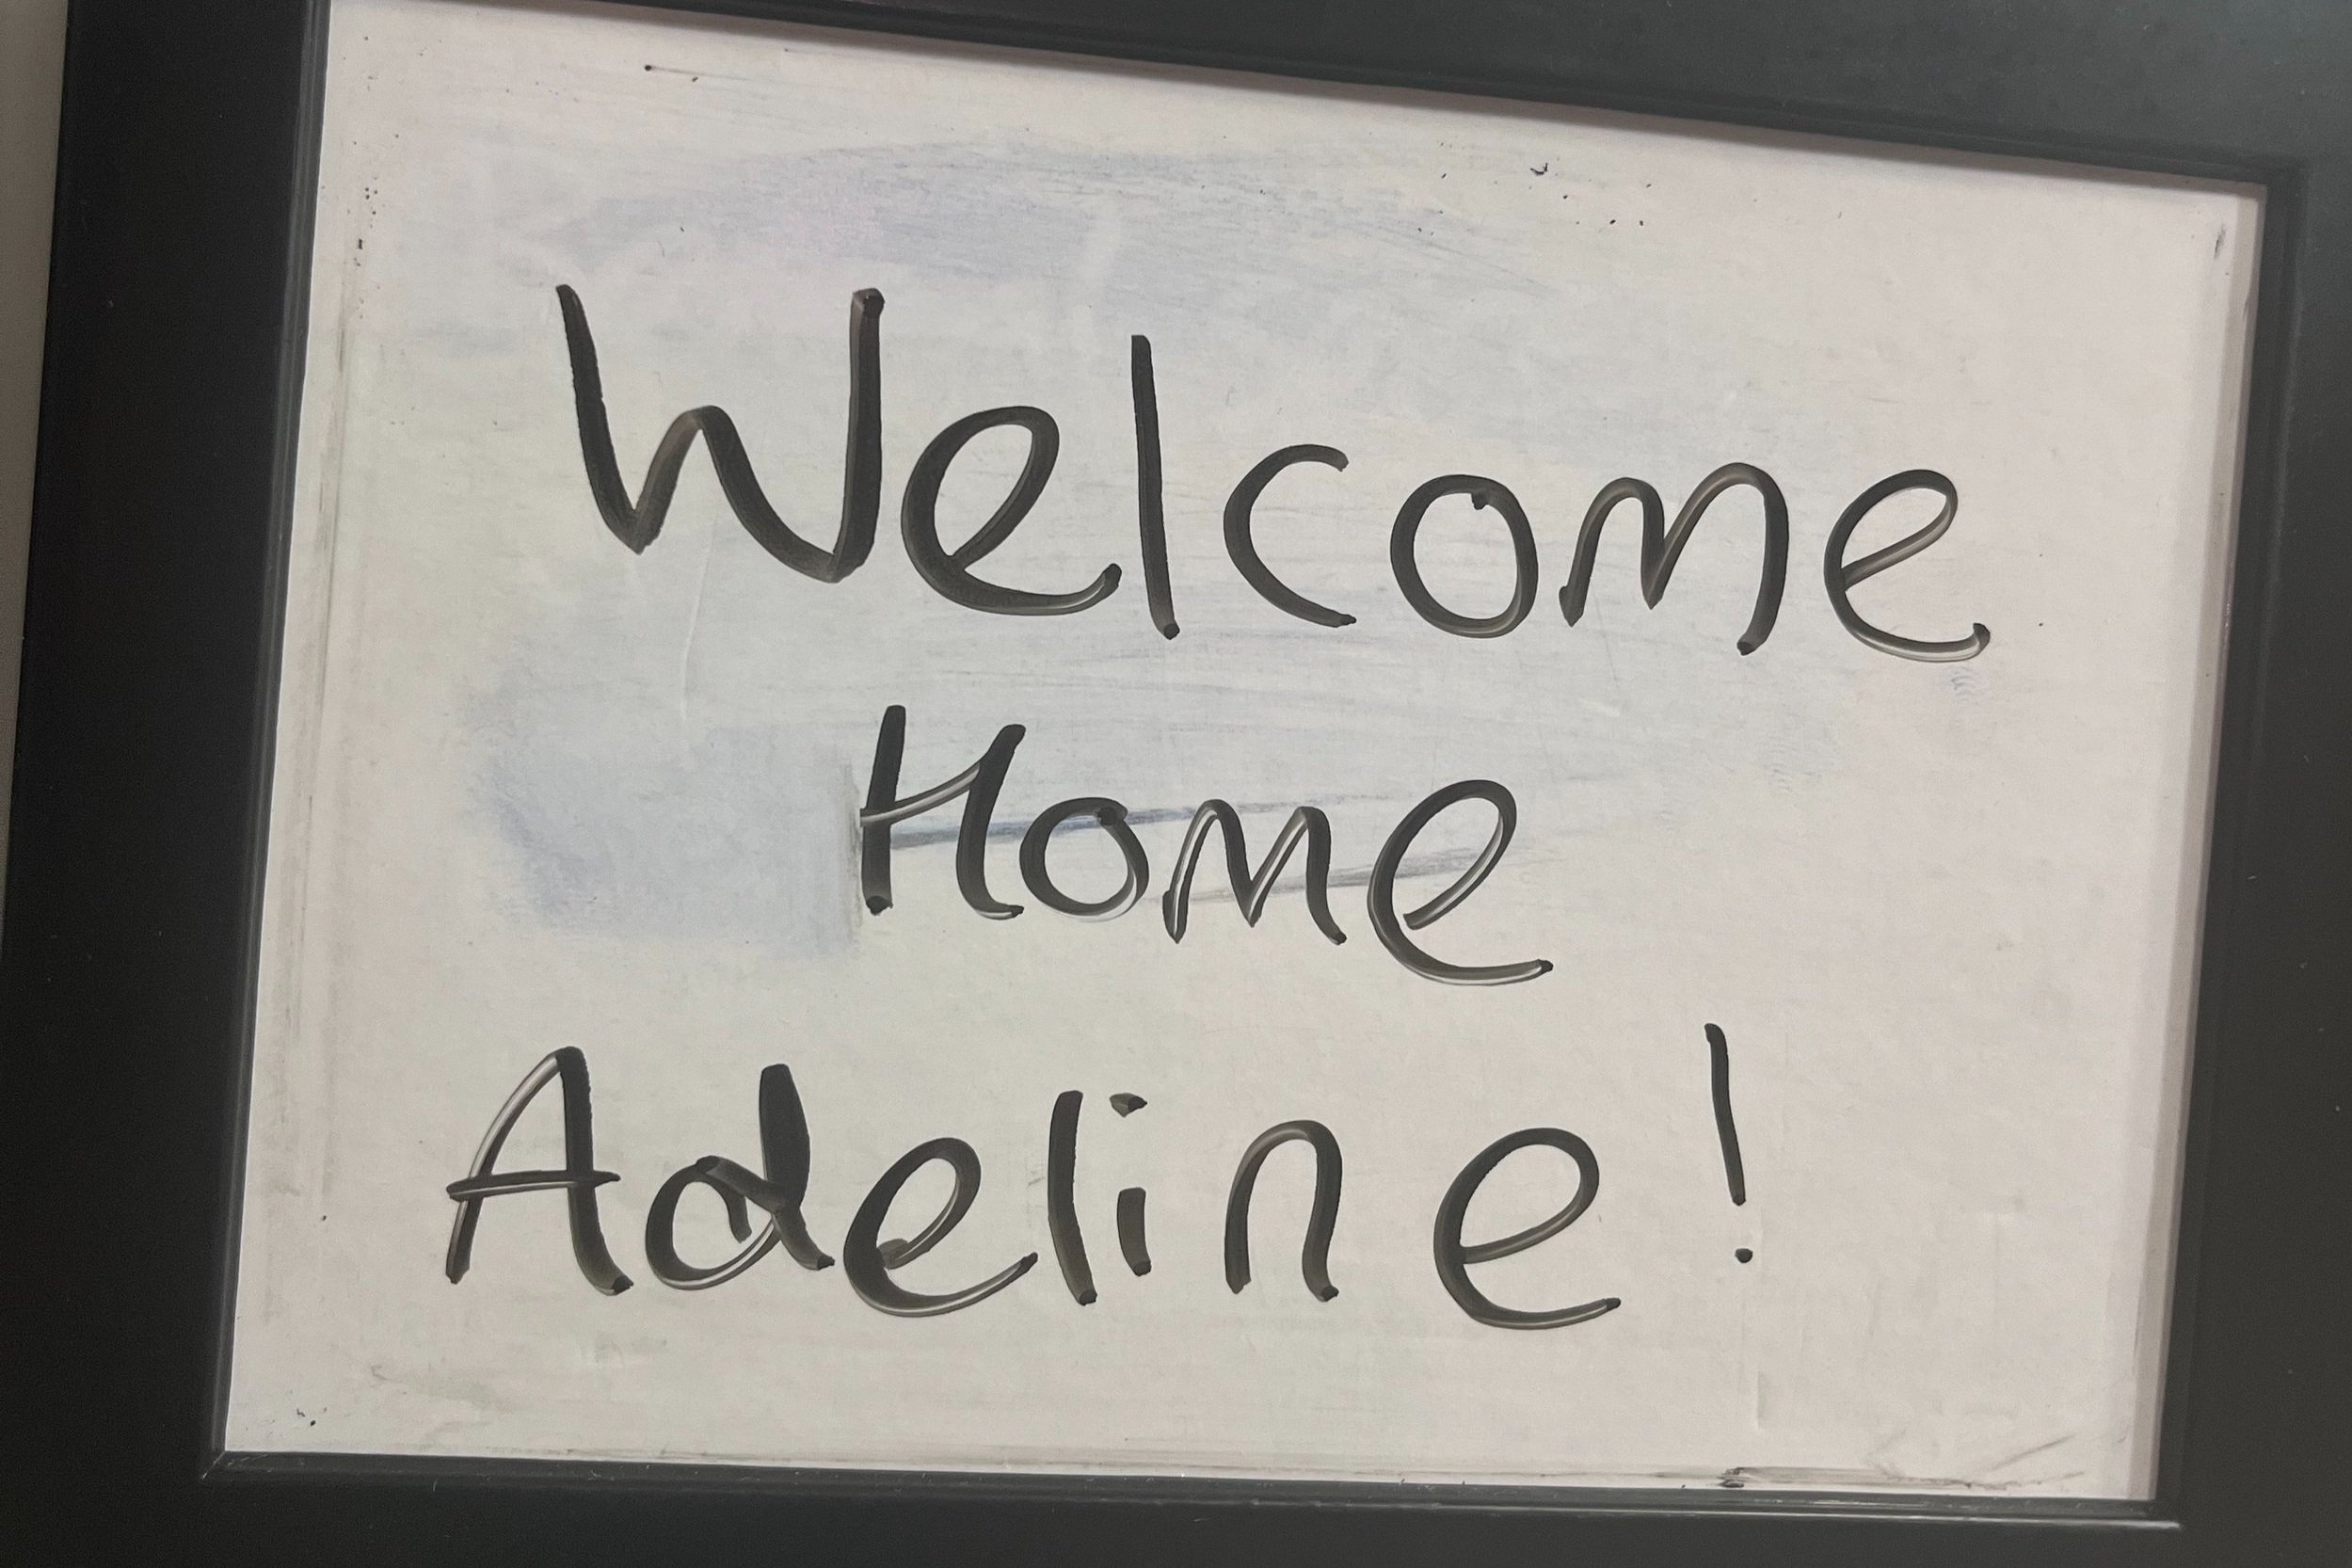 Welcome
Home
Adeline!